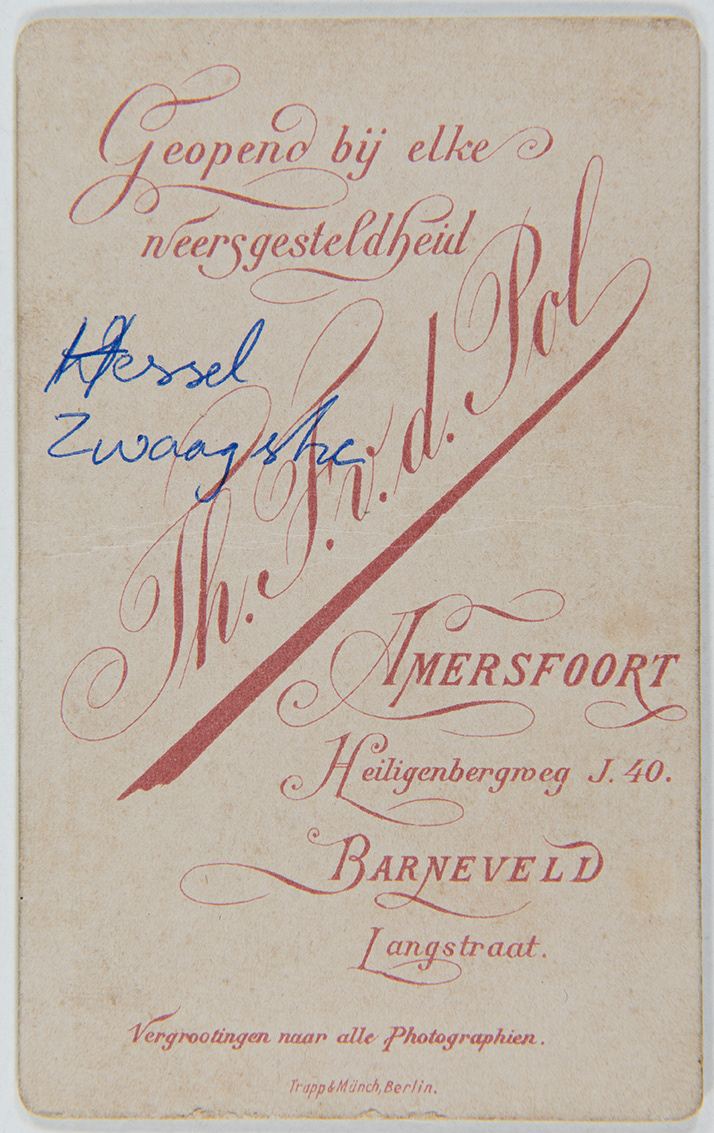 Geopend bij elke
weersgesteldheid
Hessel
Zwaagstra
Th. F. v. d. Pol
AMERSFOORT
Heiligenbergweg J. 40.
BARNEVELD
Langstraat.
Vergrootingen naar alle Photographien.
Trapp & Münch, Berlin.